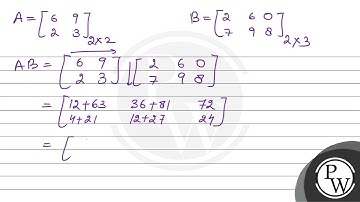 A = [6 9 2 3]2×2 B = [2 6 0 7 9 8]2×3
AB = [6 9 2 3] [2 6 0 7 9 8]
= [12+63 36+81 72
4+21 12+27 24]
= [
PW